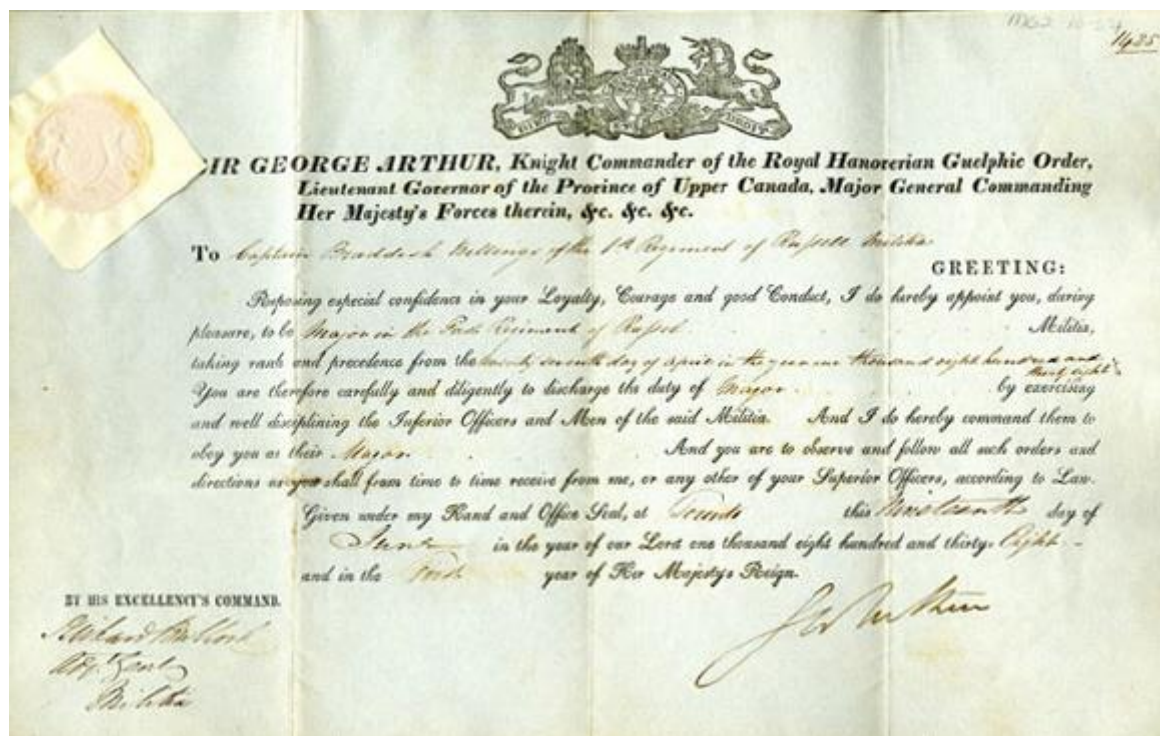 1425
DIEU ET MON DROIT
SIR GEORGE ARTHUR, Knight Commander of the Royal Hanoverian Guelphic Order,
Lieutenant Governor of the Province of Upper Canada, Major General Commanding
Her Majesty's Forces therein, &c. &c. &c.
To Captain Braddish Billings of the 1st Regiment of Russell Militia
GREETING:
Reposing especial confidence in your Loyalty, Courage and good Conduct, I do hereby appoint you, during
pleasure, to be Major in the First Regiment of Russel Militia,
taking rank and precedence from the twenty seventh day of April in the year one thousand eight hundred and
thirty eight
You are therefore carefully and diligently to discharge the duty of Major by exercising
and well disciplining the Inferior Officers and Men of the said Militia. And I do hereby command them to
obey you as their Major And you are to observe and follow all such orders and
directions as you shall from time to time receive from me, or any other of your Superior Officers, according to Law.
Given under my Hand and Office Seal, at Toronto this Nineteenth day of
June in the year of our Lord one thousand eight hundred and thirty- Eight
and in the year of Her Majesty's Reign.
BY HIS EXCELLENCY'S COMMAND.
Geo Arthur
Richard Bullock
Adjt Genl
Militia